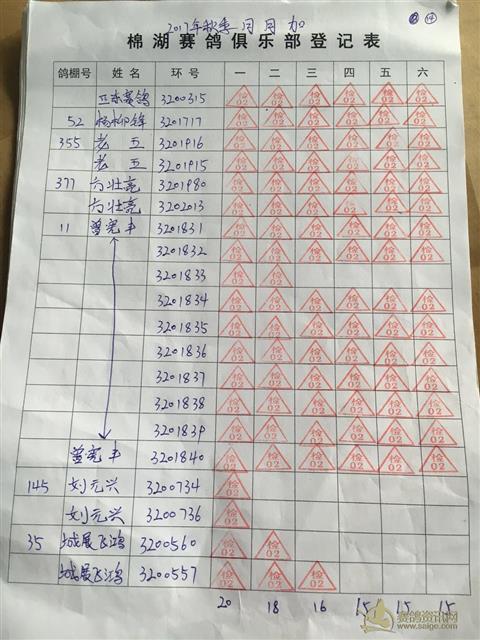 2017年秋季 月月加 ⑭
棉湖赛鸽俱乐部登记表
鸽棚号 姓名 环号 一 二 三 四 五 六
东赛鸽 3200315 检02 检02 检02 检02 检02 检02
52 杨柳锋 3201717 检02 检02 检02 检02 检02 检02
355 老五 3201916 检02 检02 检02 检02 检02 检02
老五 3201915 检02 检02 检02 检02 检02 检02
377 方壮亮 3201980 检02 检02 检02 检02 检02 检02
方壮亮 3202013 检02 检02 检02 检02 检02 检02
11 曾宪丰 3201831 检02 检02 检02 检02 检02 检02
3201832 检02 检02 检02 检02 检02 检02
3201833 检02 检02
3201834 检02 检02 检02 检02 检02 检02
3201835 检02 检02 检02 检02 检02 检02
3201836 检02 检02 检02 检02 检02 检02
3201837 检02 检02 检02 检02 检02 检02
3201838 检02 检02 检02 检02 检02 检02
3201839 检02 检02 检02 检02 检02 检02
曾宪丰 3201840 检02 检02 检02 检02 检02 检02
145 刘元兴 3200734 检02
刘元兴 3200736 检02
35 城展飞鸿 3200560 检02 检02
城展飞鸿 3200557 检02 检02 检02
20 18 16 15 15 15
赛鸽资讯网
www.saige.com